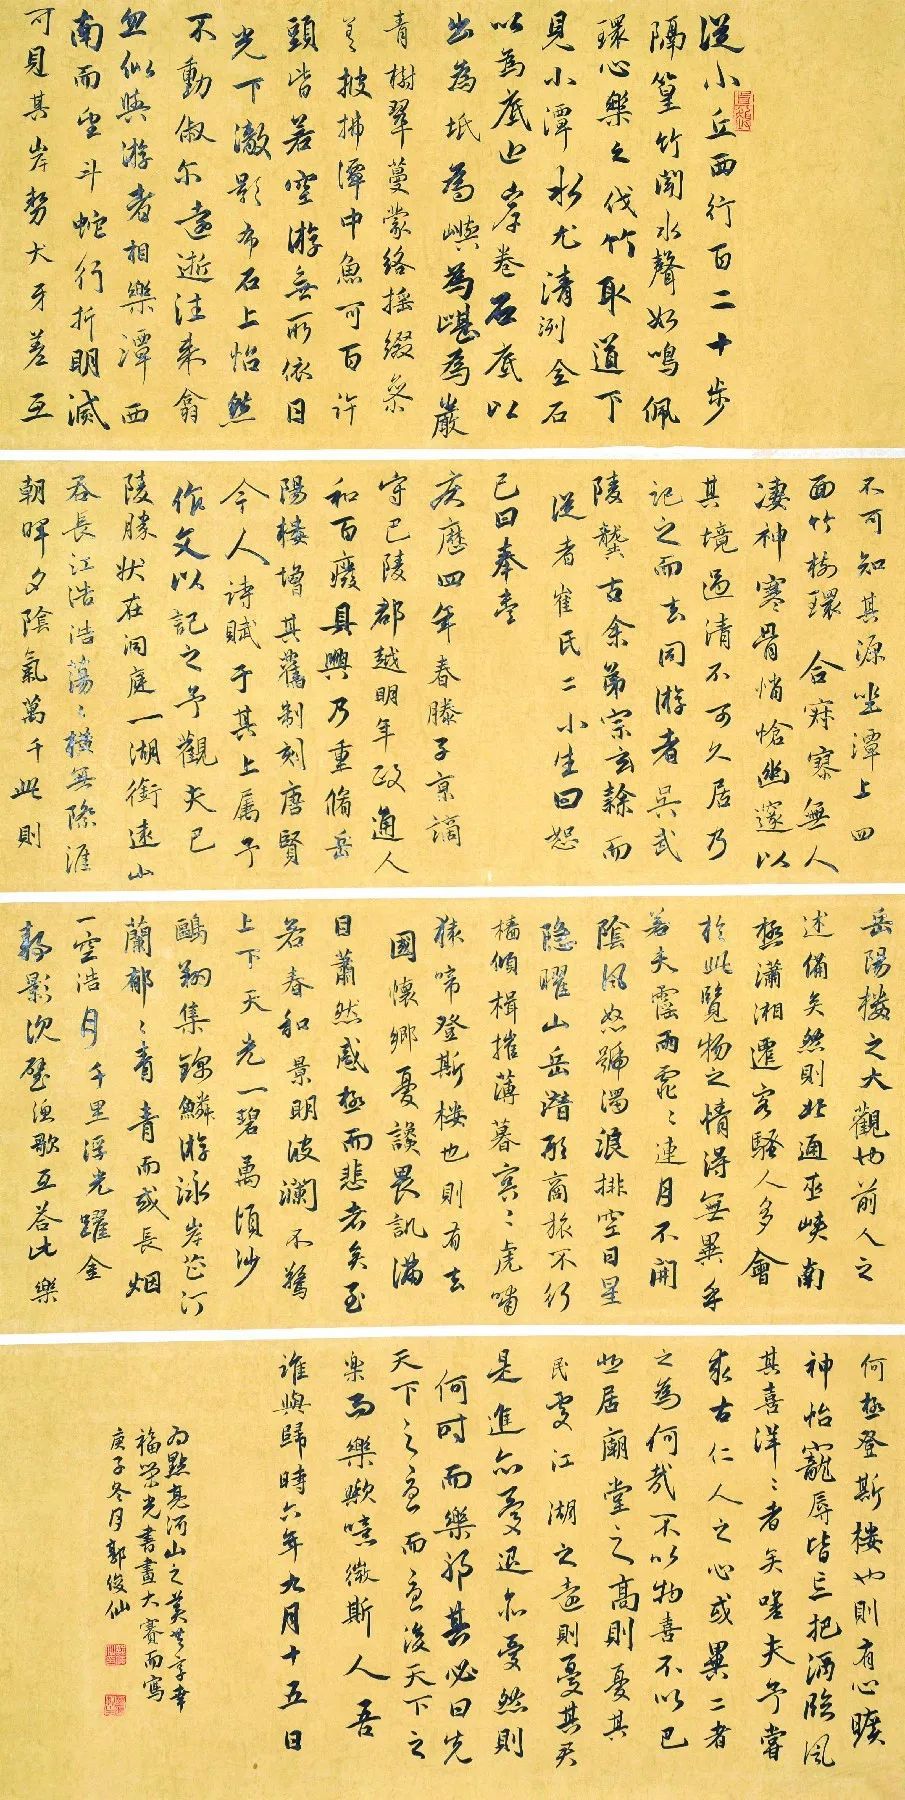 從小丘西行百二十步
隔篁竹聞水聲如鳴佩
環心樂之伐竹取道下
見小潭水尤清洌全石
以為底近岸卷石底以
出為坻為嶼為嵁為巖
青樹翠蔓蒙絡搖綴參
差披拂潭中魚可百許
頭皆若空游無所依日
光下澈影布石上怡然
不動俶尔遠逝往來翕
忽似與游者相樂潭西
南而望斗蛇行折明滅
可見其岸勢犬牙差互
不可知其源坐潭上四
面竹樹環合寂寥無人
凄神寒骨悄愴幽邃以
其境過清不可久居乃
記之而去同游者吳武
陵龔古余弟宗玄隸而
從者崔氏二小生曰恕
己曰奉壹
慶曆四年春滕子京謫
守巴陵郡越明年政通人
和百廢具興乃重脩岳
陽樓增其舊制刻唐賢
今人詩賦于其上属予
作文以記之予觀夫巴
陵勝狀在洞庭一湖銜遠山
吞長江浩浩蕩〻橫無際涯
朝暉夕陰氣萬千此則
岳陽樓之大觀也前人之
述備矣然則北通巫峽南
極瀟湘遷客騷人多會
於此覽物之情得無異乎
若夫霪雨霏〻連月不開
陰風怒號濁浪排空日星
隱曜山岳潛形商旅不行
檣傾楫摧薄暮冥〻虎嘯
猿啼登斯樓也則有去
國懷鄉憂讒畏譏滿
目蕭然感極而悲者矣至
若春和景明波瀾不驚
上下天光一碧萬頃沙
鷗翔集錦鱗游泳岸芷汀
蘭郁〻青青而或長烟
一空浩月千里浮光躍金
靜影沉璧漁歌互答此樂
何極登斯樓也則有心曠
神怡寵辱皆忘把酒臨風
其喜洋〻者矣嗟夫予嘗
求古仁人之心或異二者
之為何哉不以物喜不以己
悲居廟堂之高則憂其
民處江湖之遠則憂其君
是進亦憂退亦憂然則
何時而樂耶其必曰先
天下之憂而憂後天下之
樂而樂歟噫微斯人吾
誰與歸時六年九月十五日
為點亮河山之美共享幸
福榮光書畫大賽而寫
庚子冬月郭俊仙